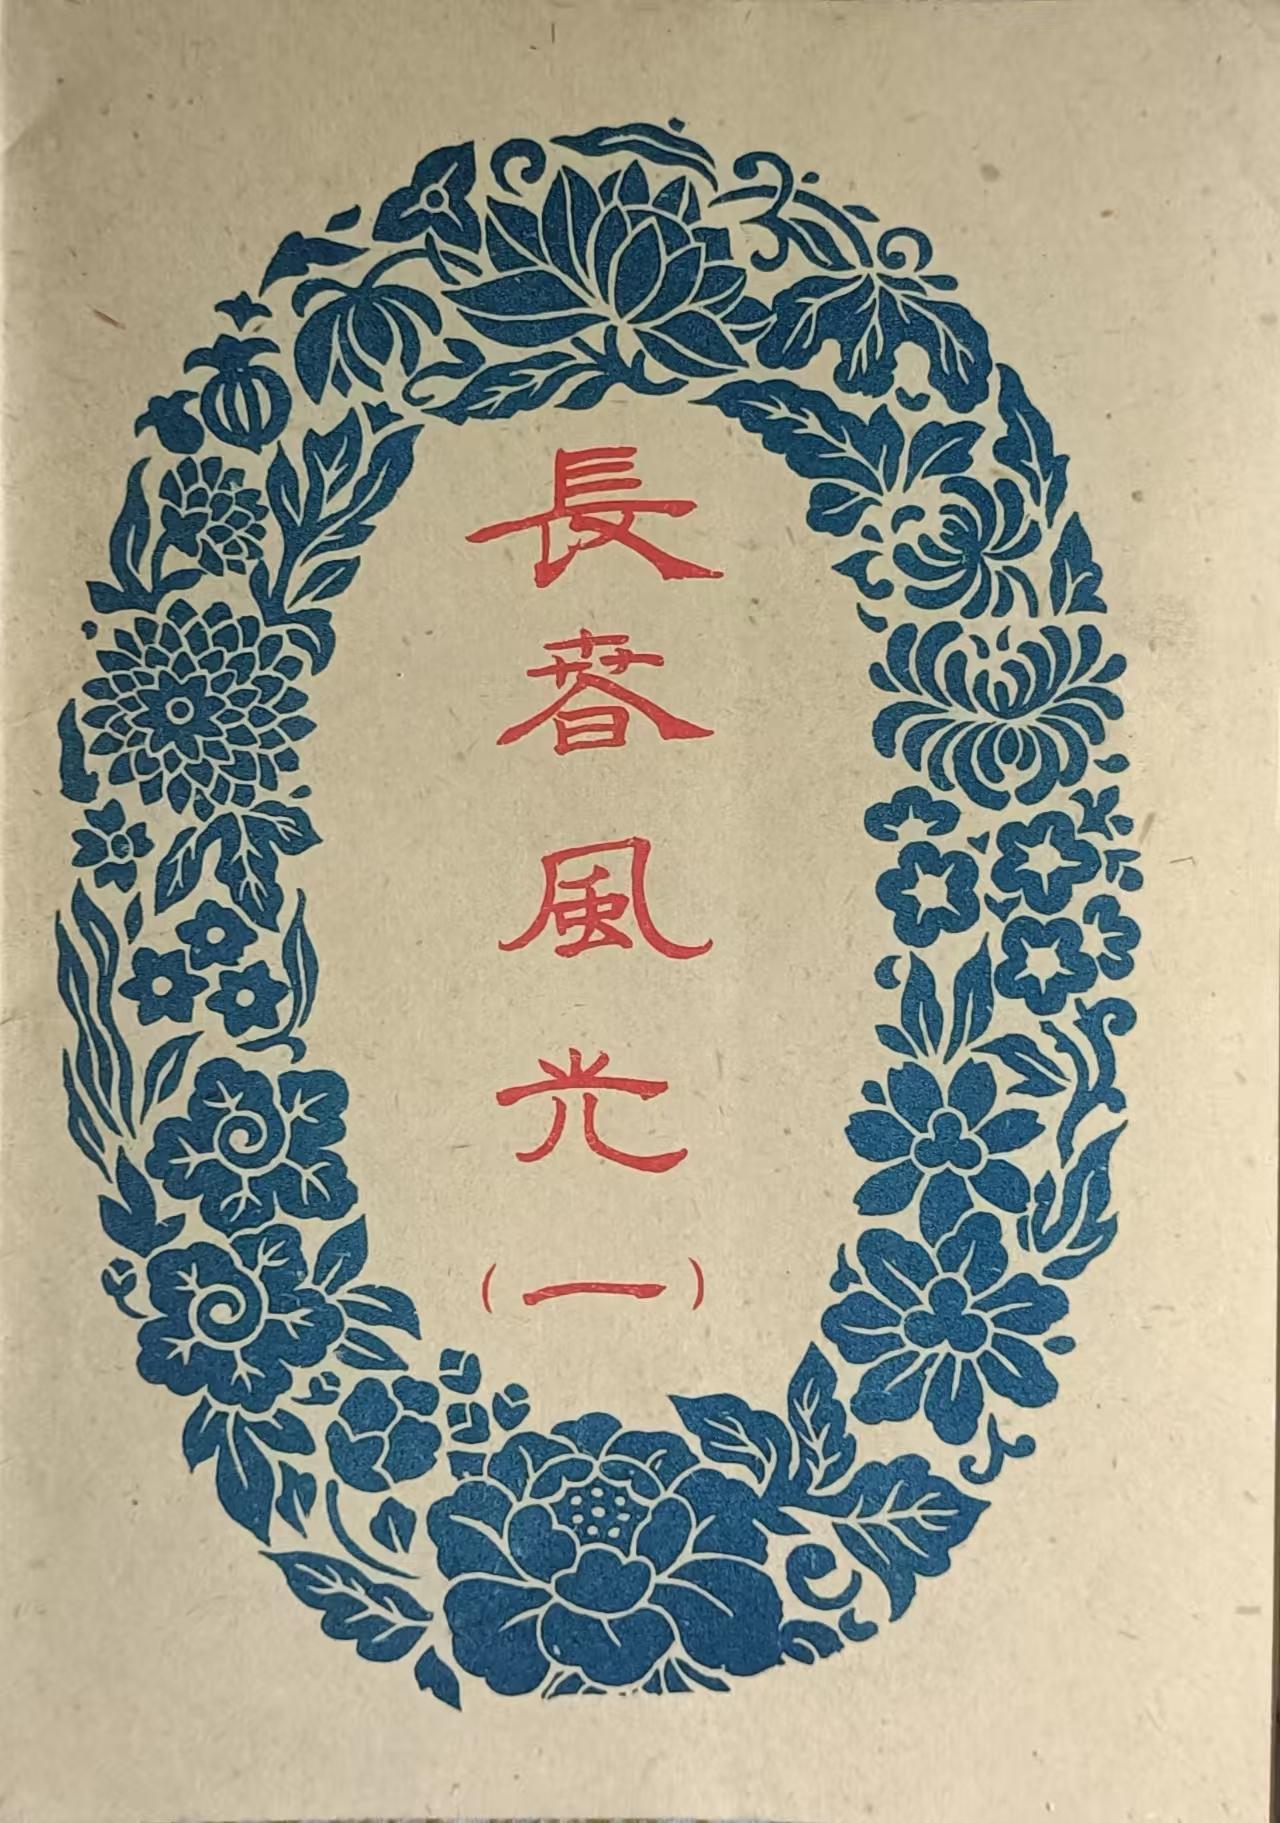 長春風光
(一)